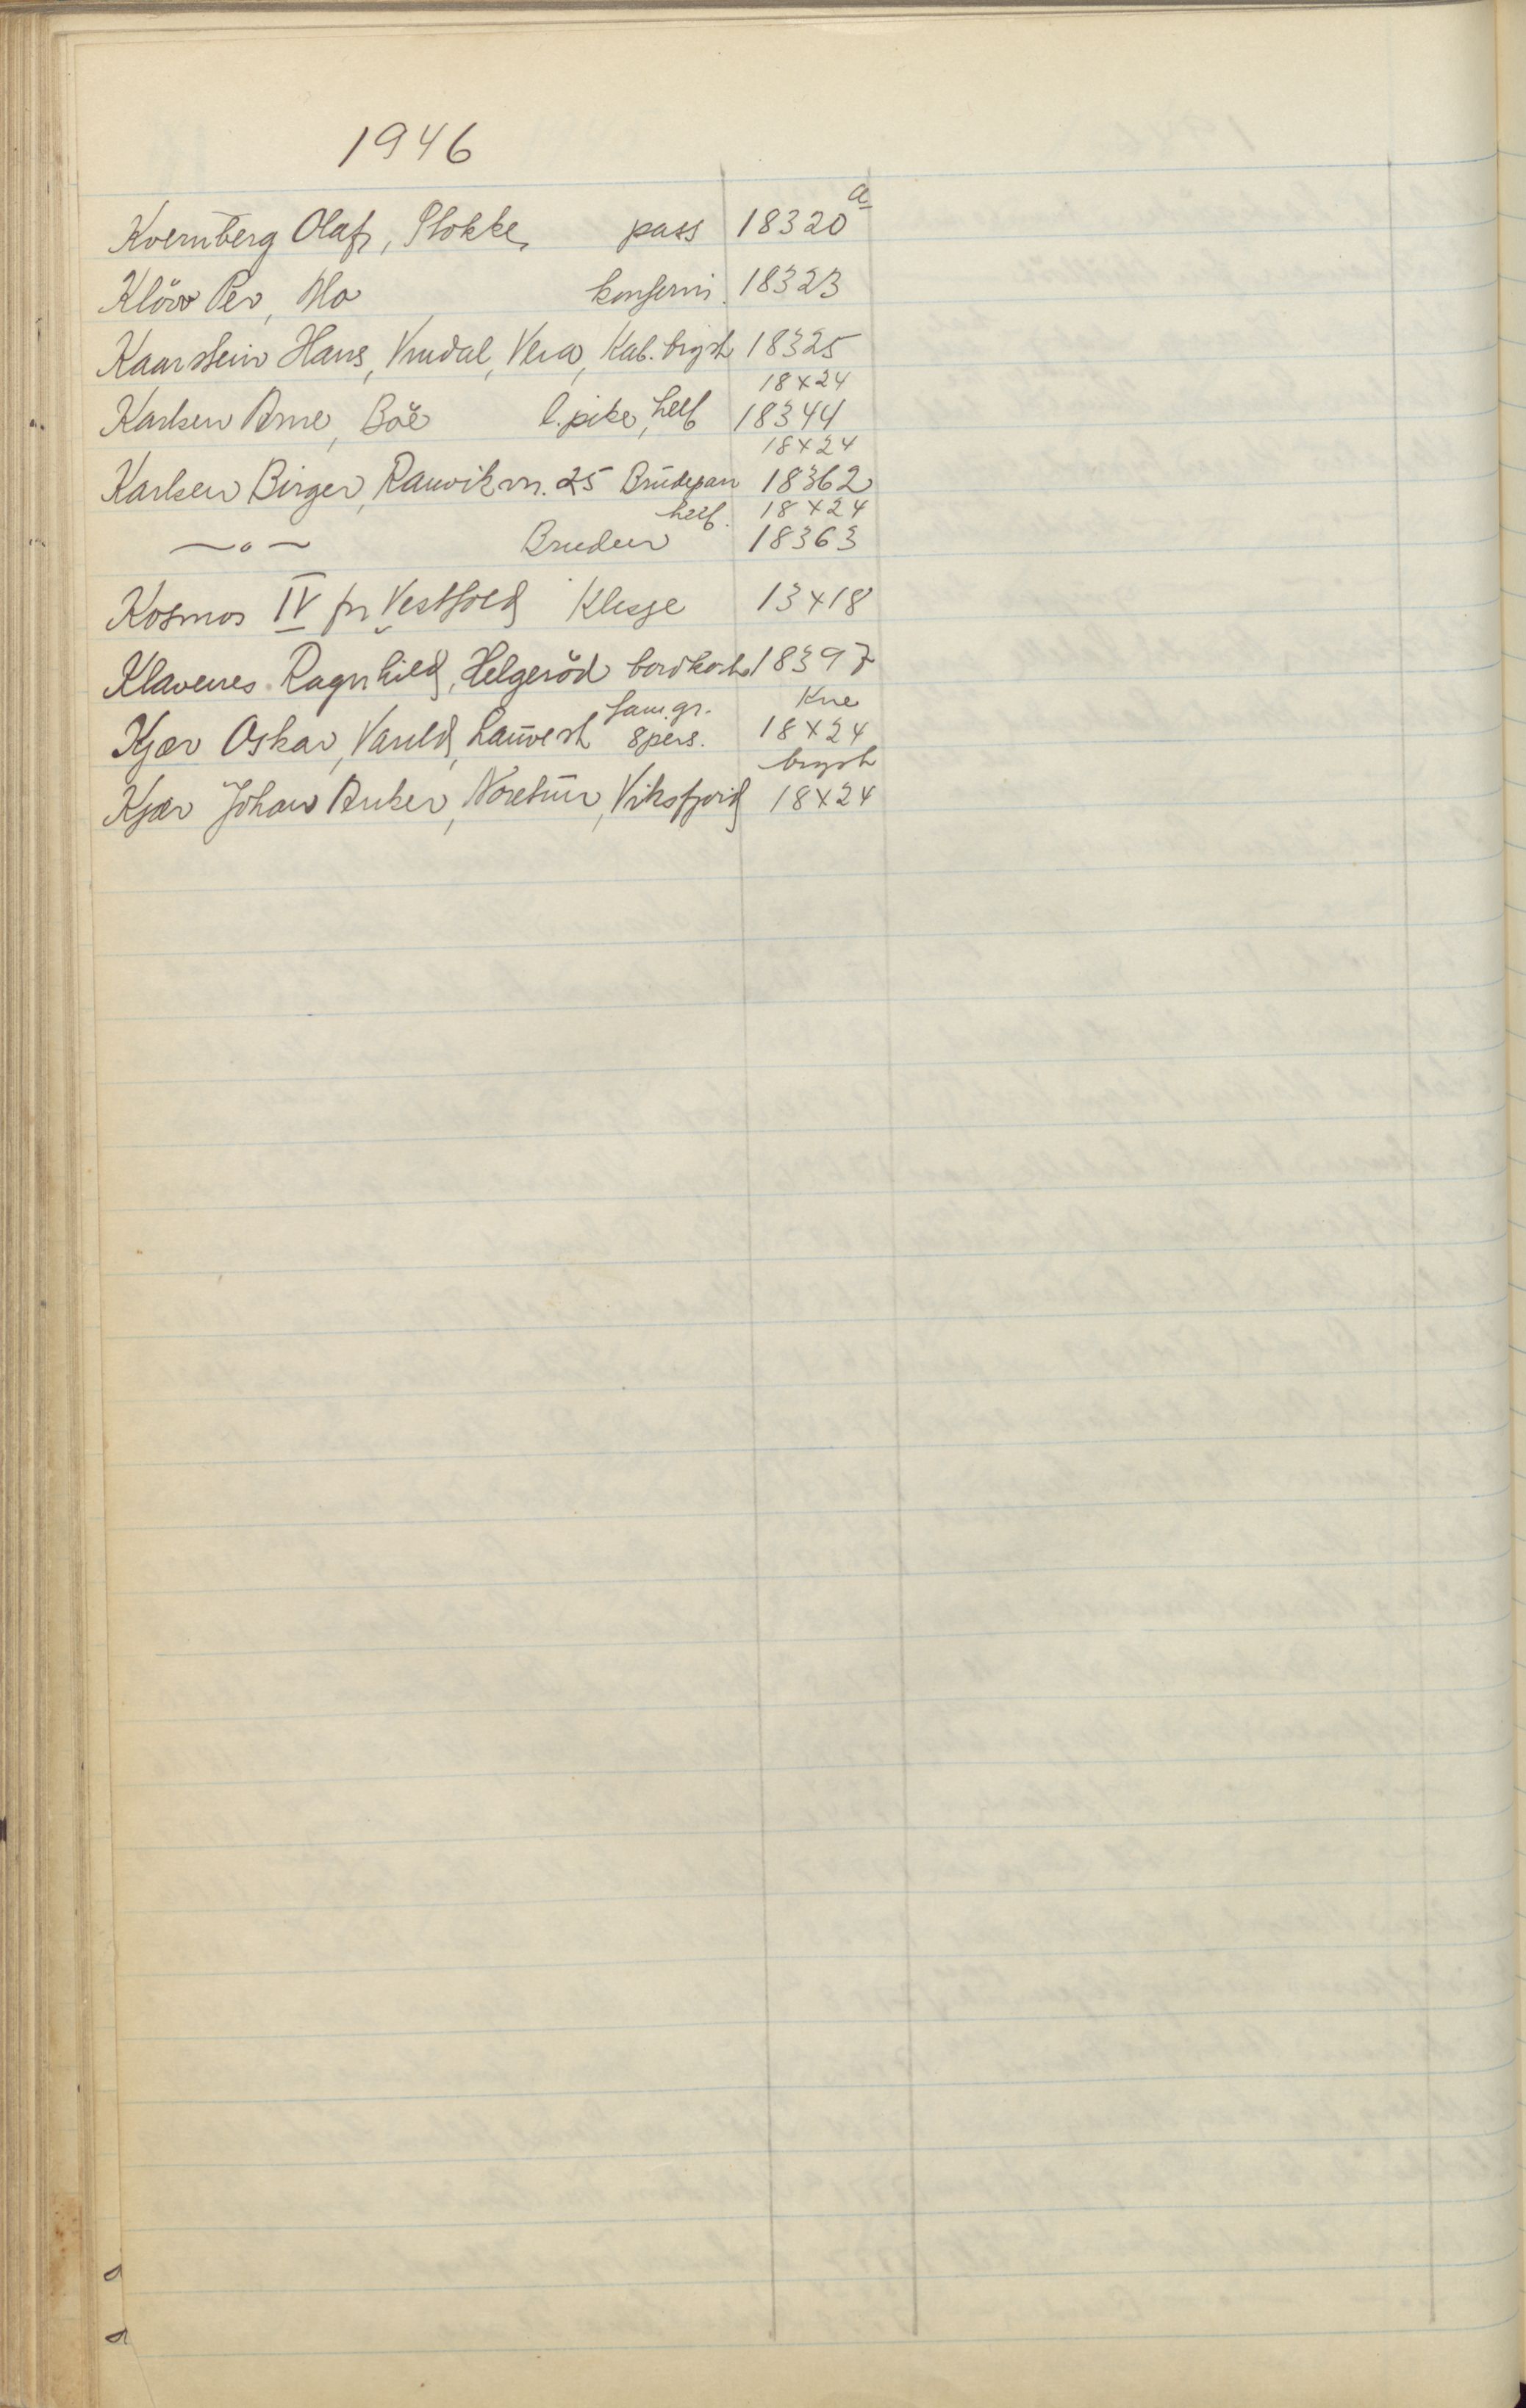 1946
Kvernberg Olaf, Stokke, pass 18320 a
Klöve Per, Mo konferm. 18323
Kaarstein Hans, Vrudal, Vera, Kab. bryst 18325
18x24
Karlsen Arne, Böe l. pike, helf 18344
18x24
Karlsen Birger, Rauvikvn. 25 Brudepar 18362
helf. 18x24
—〃— Bruden 18363
Kosmos IV fr Vestfold Klisje 13x18
Klavenes Ragnhild, Helgeröd bordkort 18397
fam.gr. Kne
Kjær Oskar, Varild, Lauvest 8 pers. 18x24
bryst
Kjær Johan Anker, Noretun, Viksfjord 18x24